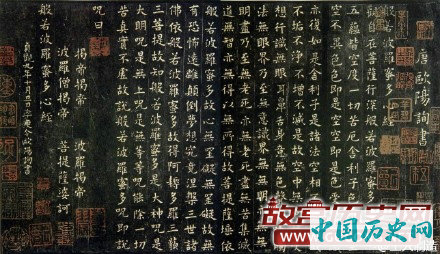 唐歐陽詢書
般若波羅蜜多
自在菩薩行深般若波羅蜜多
五蘊皆空度一切苦厄舍利子色
空不異色色即是空空即是色
亦復如是舍利子是諸法空相
不垢不淨不增不減是故空中
想行識無眼耳鼻舌身意無色
法無眼界乃至無意識界無無明
明盡乃至無老死亦無老死盡無苦集滅
道無智亦無得以無所得故菩提薩埵依
般若波羅蜜多故心無罣礙無罣礙故無
有恐怖遠離顛倒夢想究竟涅槃三世諸
佛依般若波羅蜜多故得阿耨多羅三藐
三菩提故知般若波羅蜜多是大神呪是
大明呪是無上呪是無等等呪能除一切
苦真實不虛故說般若波羅蜜多呪即說
呪曰
揭帝揭帝 波羅揭帝
波羅僧揭帝 菩提薩婆訶
般若波羅蜜多心經
貞觀九年十月旦日率更令歐陽詢書
中国历史网